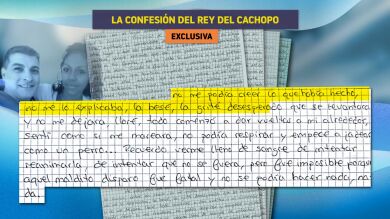 LA CONFESIÓN DEL REY DEL CACHOPO
EXCLUSIVA
no me podía creer lo que había hecho,
no me lo explicaba, la besé, la grité desesperado que se levantara
y no me dejara llore, todo comenzó a dar vueltas a mi alrededor,
sentí como si me mareara, no podía respirar y empecé a jadear
como un perro... Recuerdo verme lleno de sangre de intentar
reanimarla, de intentar que no se fuera, pero fue imposible porque
aquel maldito disparo fue fatal y no se podía hacer nada, na-
da.